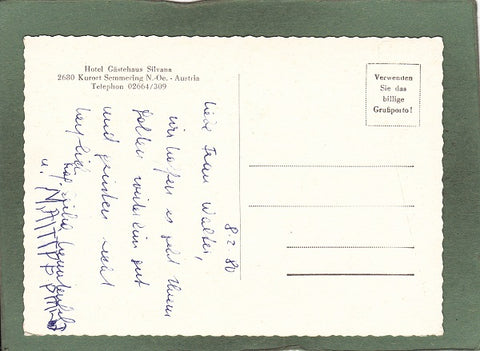 Hotel Gästehaus Silvana
2680 Kurort Semmering N.-Oe. - Austria
Telephon 02664/309
Verwenden
Sie das
billige
Grußporto!
8. 2. 80
Liebe Frau Walter,
wir hoffen es geht Ihnen
weiterhin gut
und grüßen recht
herzlich
u.